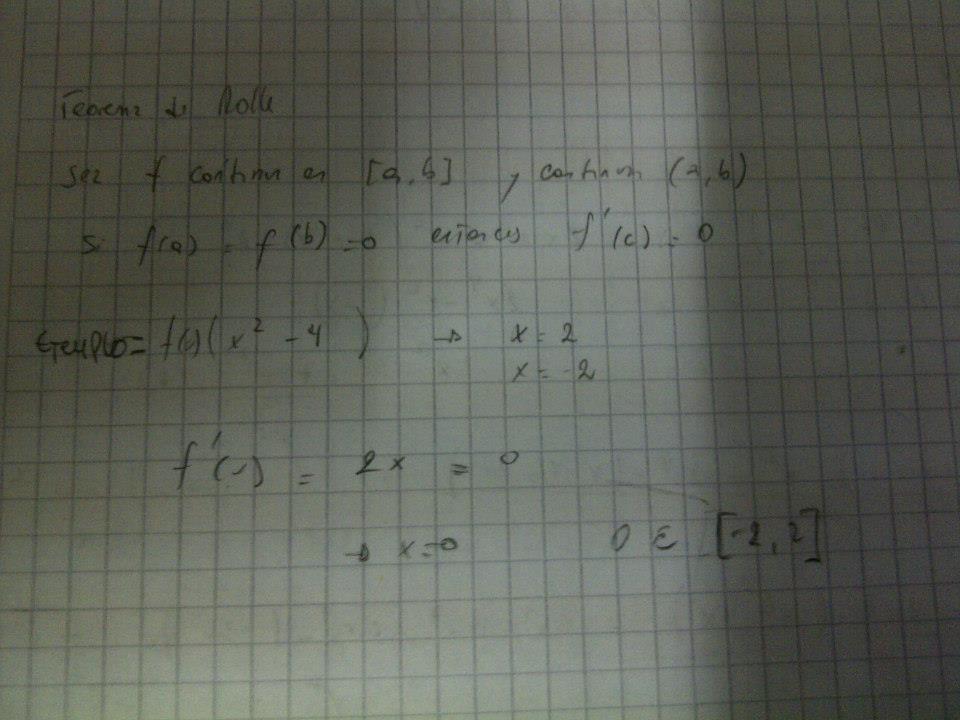 Teorema de Rolle
sea f continua en [a, b] y continua (a, b)
Si f(a) = f(b) = 0 entonces f'(c) = 0
EJEMPLO = f(x)(x² - 4) → x = 2
x = -2
f'(x) = 2x = 0
→ x = 0 0 ∈ [-2, 2]